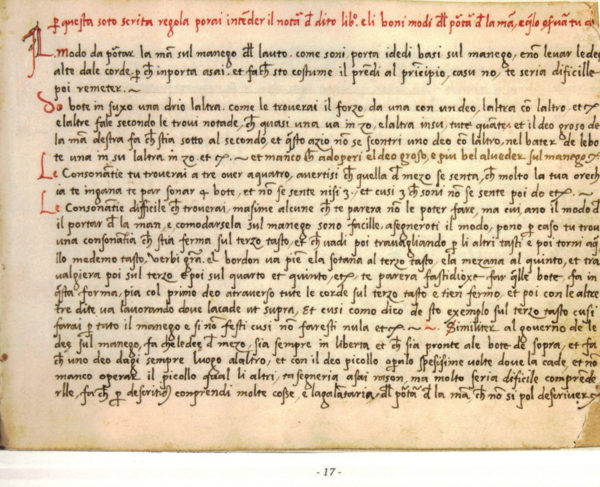 per questa soto scrita regola porai intender il notar d dito libro. e li boni modi dll portar d la man, e qsto
L modo da portar la mã sul manego dl lauto. come soni porta i dedi basi sul manego, e nõ levar le dee
alte dale corde, p ch inporta asai. et fa ch sto costume il prendi al principio, casu no, te seria dificille
poi remeter. ~
Do bote in suxo una drio laltra. come le troverai il forzo da una con un deo, laltra cõ laltro. et
e laltre fale secondo le trovi notade, ch quasi una va in zo, e laltra in su, tute quante. et il deo groso de
la mã destra fa ch stia sotto al secondo, et qsto aziò nõ se scontri uno deo cõ laltro, nel bater de le bo
te una in su laltra in zo. et ~ et manco ch adoperi el deo groso, e piu bel alveder sul manego
Le Consonãtie tu troverai a tre over a quatro, avertisi ch quella d mezo se senta, ch molto la tua orech
ia te ingana te par sonar 4 bote, et nõ se sente nisi 3. et cusi 3 ch soni nõ se sente poi do et ~
Le Consonãtie dificille ch troverai, masime alcune ch te parera nõ le poter fare, ma cui, ano il modo d
il portar d la man, e comodarsela sul manego sono facille, asegneroti il modo, pono p caso tu trovi
una consonãtia ch stia ferma sul terzo tasto, et ch vadi poi travagliando p li altri tasti e poi torni a q
llo medemo tasto, verbi gra. el bordon va piẽ ela sotana al terzo tasto, ela mezana al quinto, et tra
valgiera poi sul terzo e poi sul quarto et quinto, et te parera fastidioxe far qlle bote, fa in
qsta forma, pia col primo deo atraverso tute le corde sul terzo tasto e tien fermo, et poi con le altre
tre dite va lavorando dove lacade ut supra, et cusi como dico de sto exemplo sul terzo tasto cusi
farai p tuto il manego e si nõ festi cusi nõ faresti nula et ~ ~ Similiter al governo de le
des sul manego, fa che lo deo d mezo, sia sempre in liberta et ch sia pronte ale bote de sopra, et fa
ch uno deo dagi sempre luogo alaltro, et con il deo picollo opralo spesisime volte dova la cade, et nõ
manco operar il picollo qual li altri, ta segneria asai rason, ma molto seria dificile comprede
rlle, fa ch p descritiõ conprendi molte cosse, dll portar d la mã, ch nõ si pol descriver
- 17 -